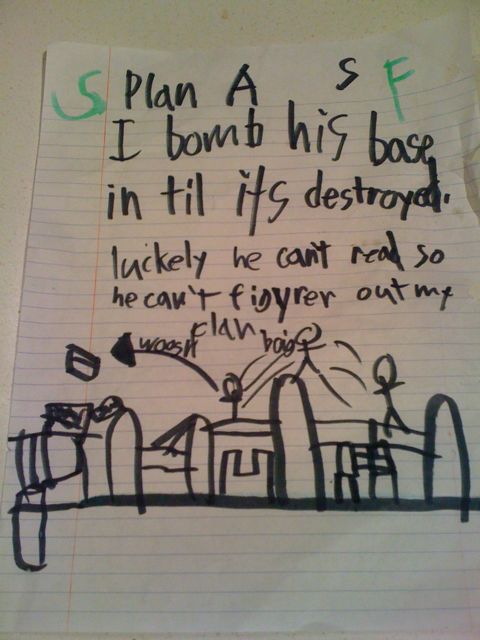 S Plan A S F
I bomb his base
in til its destroyed.
luckely he can't read so
he can't figyrer out my
Plan
woosh
boig